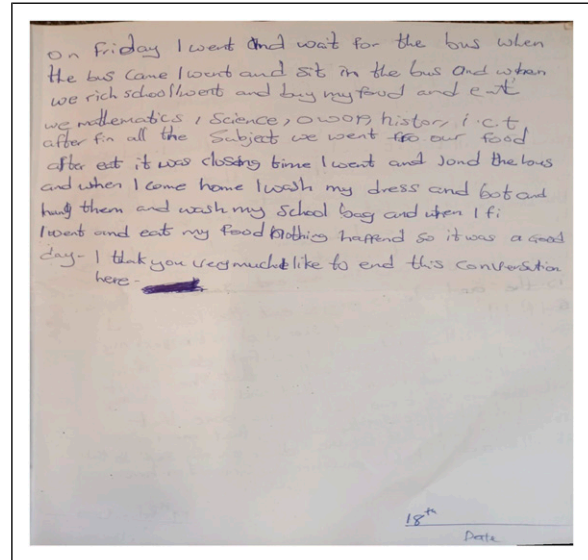 on Friday I went and wait for the bus when
the bus came I went and sit in the bus and when
we rich school I went and buy my food and eat
we mathematics, Science, owop, history, i.c.t
after fin all the Subject we went to our food
after eat it was closing time I went and Jond the bus
and when I come home I wash my dress and bot and
hung them and wash my School bag and when I fi
I went and eat my food Nothing haffend so it was a Good
day- I thak you very much like to end this conversation
here-
18th
Date